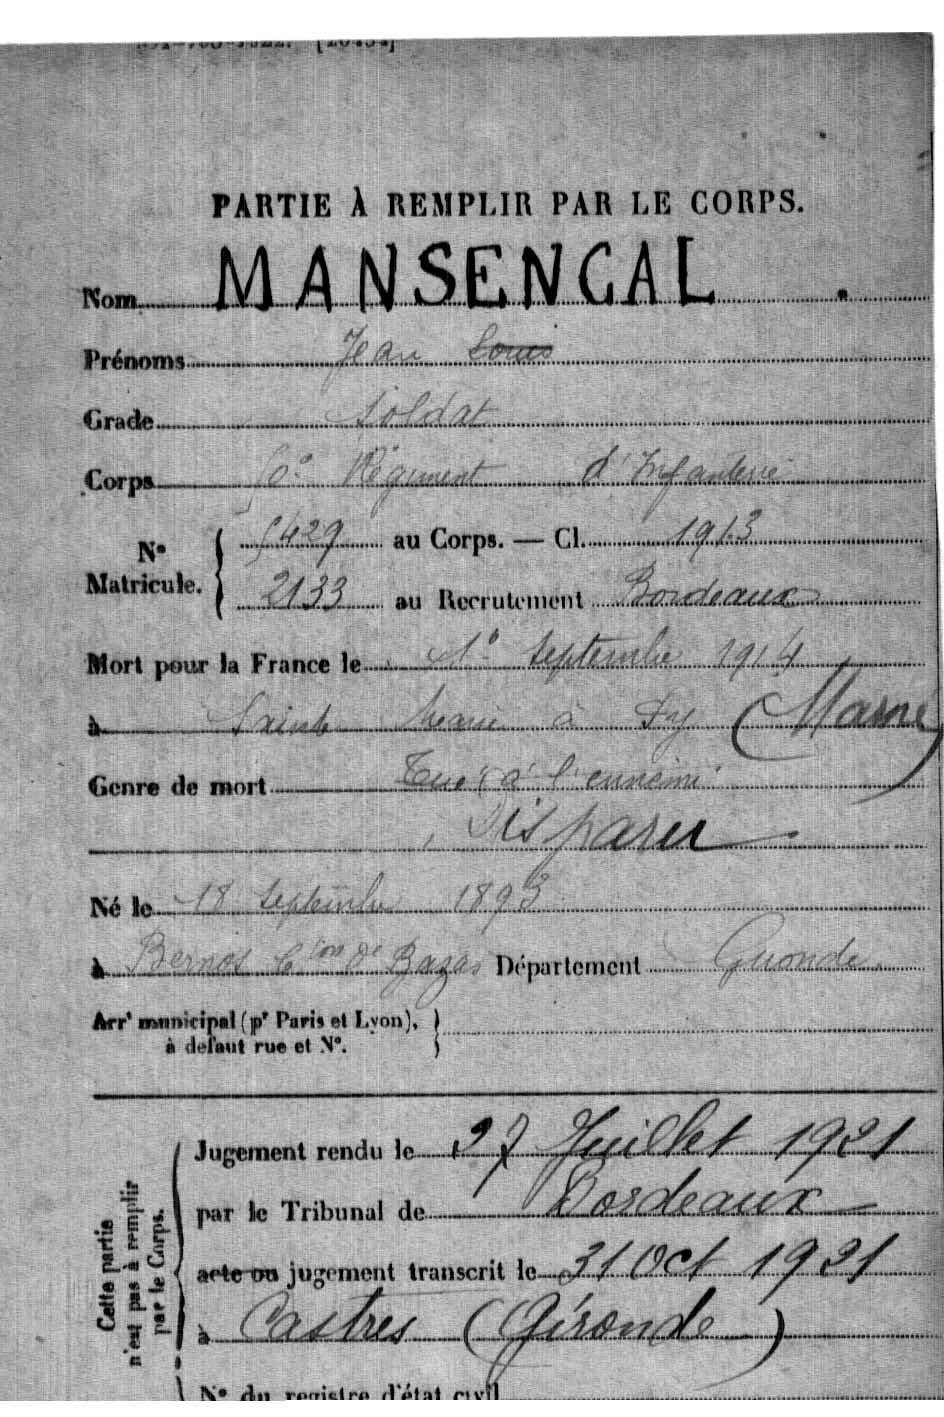 PARTIE À REMPLIR PAR LE CORPS.
Nom MANSENCAL
Prénoms Jean Louis
Grade Soldat
Corps 50e Régiment d'Infanterie
No Matricule. 5429 au Corps. — Cl. 1913
2133 au Recrutement Bordeaux
Mort pour la France le 1o Septembre 1914
à Sainte Marie à Py (Marne)
Genre de mort Tué à l'ennemi
Disparu
Né le 18 Septembre 1893
à Bernos Cton de Bazas Département Gironde
Arrt municipal (pr Paris et Lyon),
à defaut rue et No.
Cette partie
n'est pas à remplir
par le Corps.
Jugement rendu le 27 Juillet 1921
par le Tribunal de Bordeaux
acte ou jugement transcrit le 31 Oct 1921
à Castres (Gironde)
No du registre d'état civil